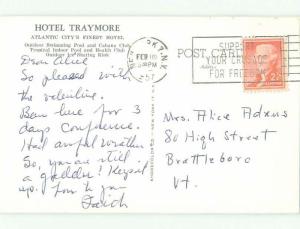 HOTEL TRAYMORE
ATLANTIC CITY'S FINEST HOTEL
Outdoor Swimming Pool and Cabana Club
Tropical Indoor Pool and Health Club
Outdoor Ice Skating Rink
Dear Alice
So pleased with
the valentine.
Been here for 3
days conference.
Had awful weather
So, you are still
a gadder! Keep it
up. Love to you
Faith
POST CARD
FEB 18
PM
1957
SUPPORT
YOUR CRUSADE
FOR FREEDOM
2¢
Mrs. Alice Adams
80 High Street
Brattleboro
Vt.